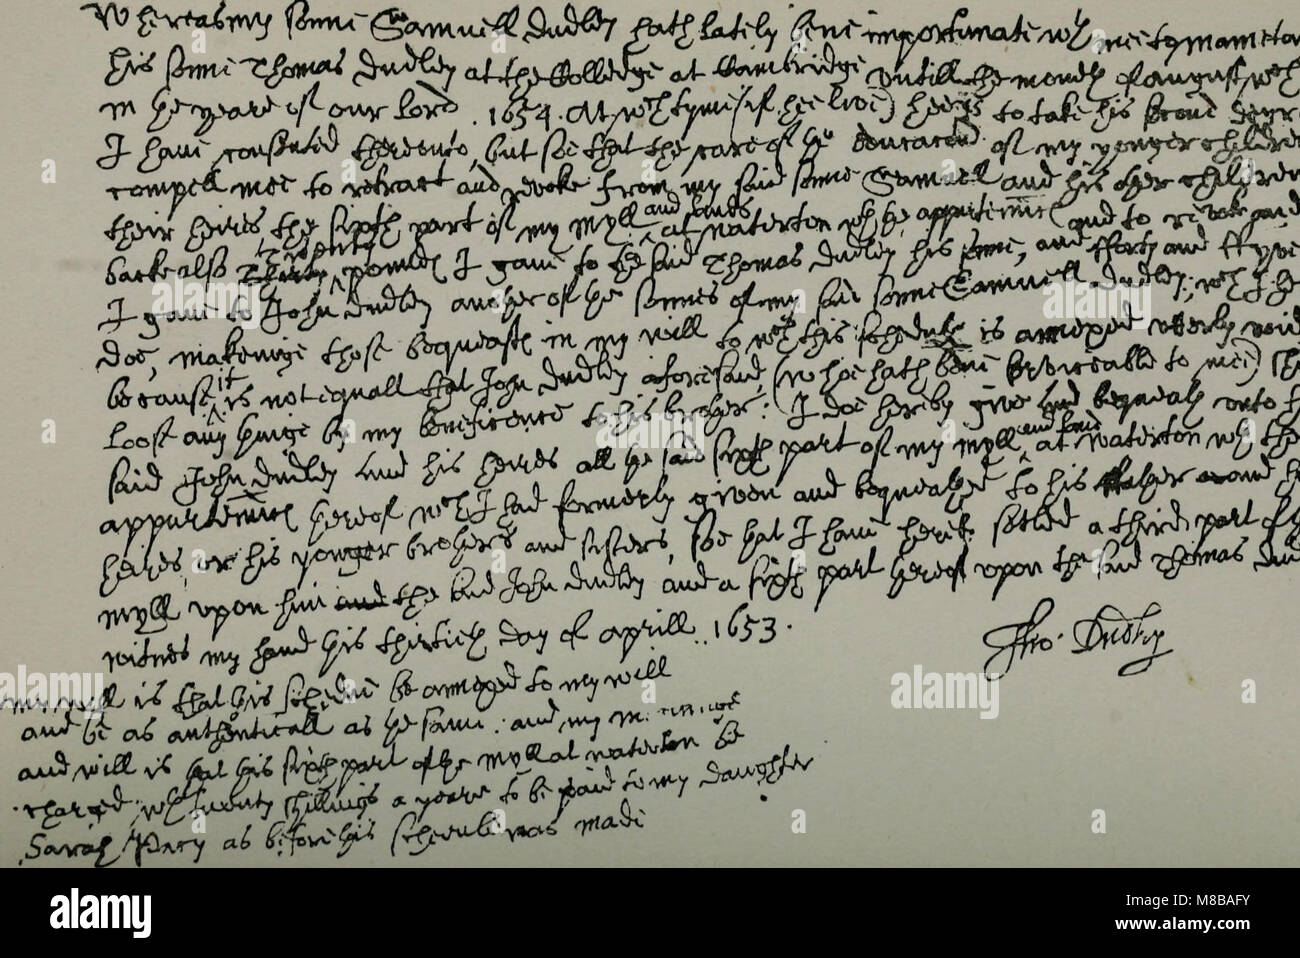 Whereas my sonne Samuell Dudley hath lately bene importunate wth mee to
his sonne Thomas Dudley at the Colledge at Cambridge untill the month of August wch
in the yeare of our Lord . 1654 . At wch tyme (if hee live) hee is to take his second degre
I have consented thereunto, but soe that the care of the of my yonger children
compell mee to retract and revoke from my said sonne Samuell and his other children
their heires the sixth part of my myll and lands at Waterton wth the appurtenances and to revoke
backe also Twenty pounds I gave to the said Thomas Dudley his sonne, and fforty and ffyve
I gave to John Dudley another of the sonnes of my said sonne Samuell Dudley; wch I he
doe, makeinge those bequeasts in my will to wch this schedule is annexed utterly void
because it is not equall that John Dudley aforesaid, (who hath bene serviceable to mee) sh
loose any thinge by my beneficence to his brother: I doe hereby give and bequeath unto th
said John Dudley and his heires all the said sixth part of my myll and land at Waterton wth the
appurtenances thereof wch I had formerly given and bequeathed to his ffather and h
heires, or his yonger brothers and sisters, soe that I have herein setled a third part of th
myll upon him and the said John Dudley and a sixth part thereof upon the said Thomas Dud
witnes my hand this thirtieth day of Aprill . 1653 .
Tho: Dudley
my will is that this schedule be annexed to my will
and be as authenticall as the same: and my
and will is that this sixth part of the myll at Waterton be
charged wth twenty shillings a yeare to be paid to my daughter
Sarah Pacy as before this schedule was made
alamy
alamy
Image ID: M8BAFY
www.alamy.com